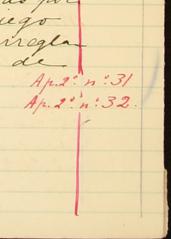 por
iego
arregla
de
Ap. 2º nº 31
Ap. 2º nº 32.